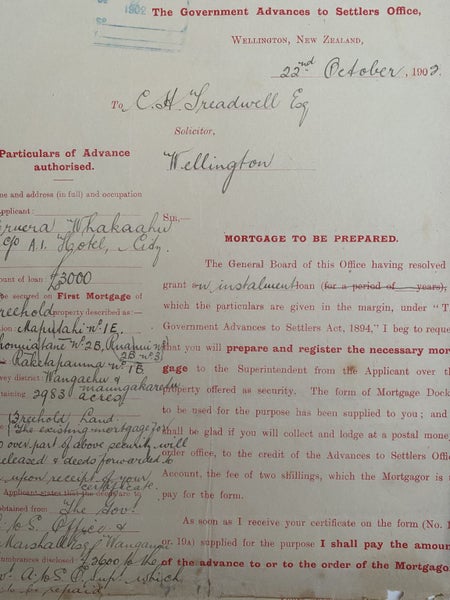 1902
The Government Advances to Settlers Office,
WELLINGTON, NEW ZEALAND,
22nd October, 1902.
To C. H. Treadwell Esq
Solicitor,
Wellington
Particulars of Advance
authorised.
me and address (in full) and occupation
Applicant:
Whakaahu
c/o A.1. Hotel, City.
ount of loan £3000
be secured on First Mortgage of
reehold property described as:—
ion Maputahi No 1E,
No 2B, Ruanui No
2B No 3
Raketapauma No 1B
vey district Wangaehu &
Maungakaretu
taining 2983 acres
Freehold Land.
The existing mortgage for
over part of above security will
eleased & deeds forwarded to
upon receipt of your
certificate.
Applicant states that the may be
obtained from The Gov.
to S. Office &
Marshall Wanganui
umbrances disclosed £2600 to the
A. to S. O. Supt. which
to be repaid
SIR,—
MORTGAGE TO BE PREPARED.
The General Board of this Office having resolved
grant an instalment loan (for a period of years),
which the particulars are given in the margin, under "T
Government Advances to Settlers Act, 1894," I beg to reque
that you will prepare and register the necessary mor
gage to the Superintendent from the Applicant over th
property offered as security. The form of Mortgage Dock
to be used for the purpose has been supplied to you; and
shall be glad if you will collect and lodge at a postal mone
order office, to the credit of the Advances to Settlers Offic
Account, the fee of two shillings, which the Mortgagor is
pay for the form.
As soon as I receive your certificate on the form (No. 1
or 19A) supplied for the purpose I shall pay the amoun
of the advance to or to the order of the Mortgago